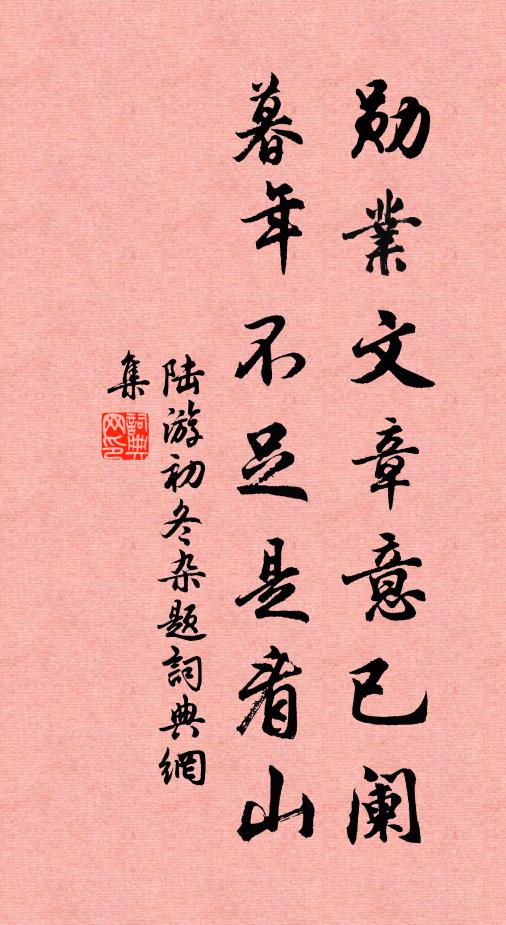 勋業文章意已阑
暮年不足是看山
陆游初冬杂题詞典網
集
詞典
网印